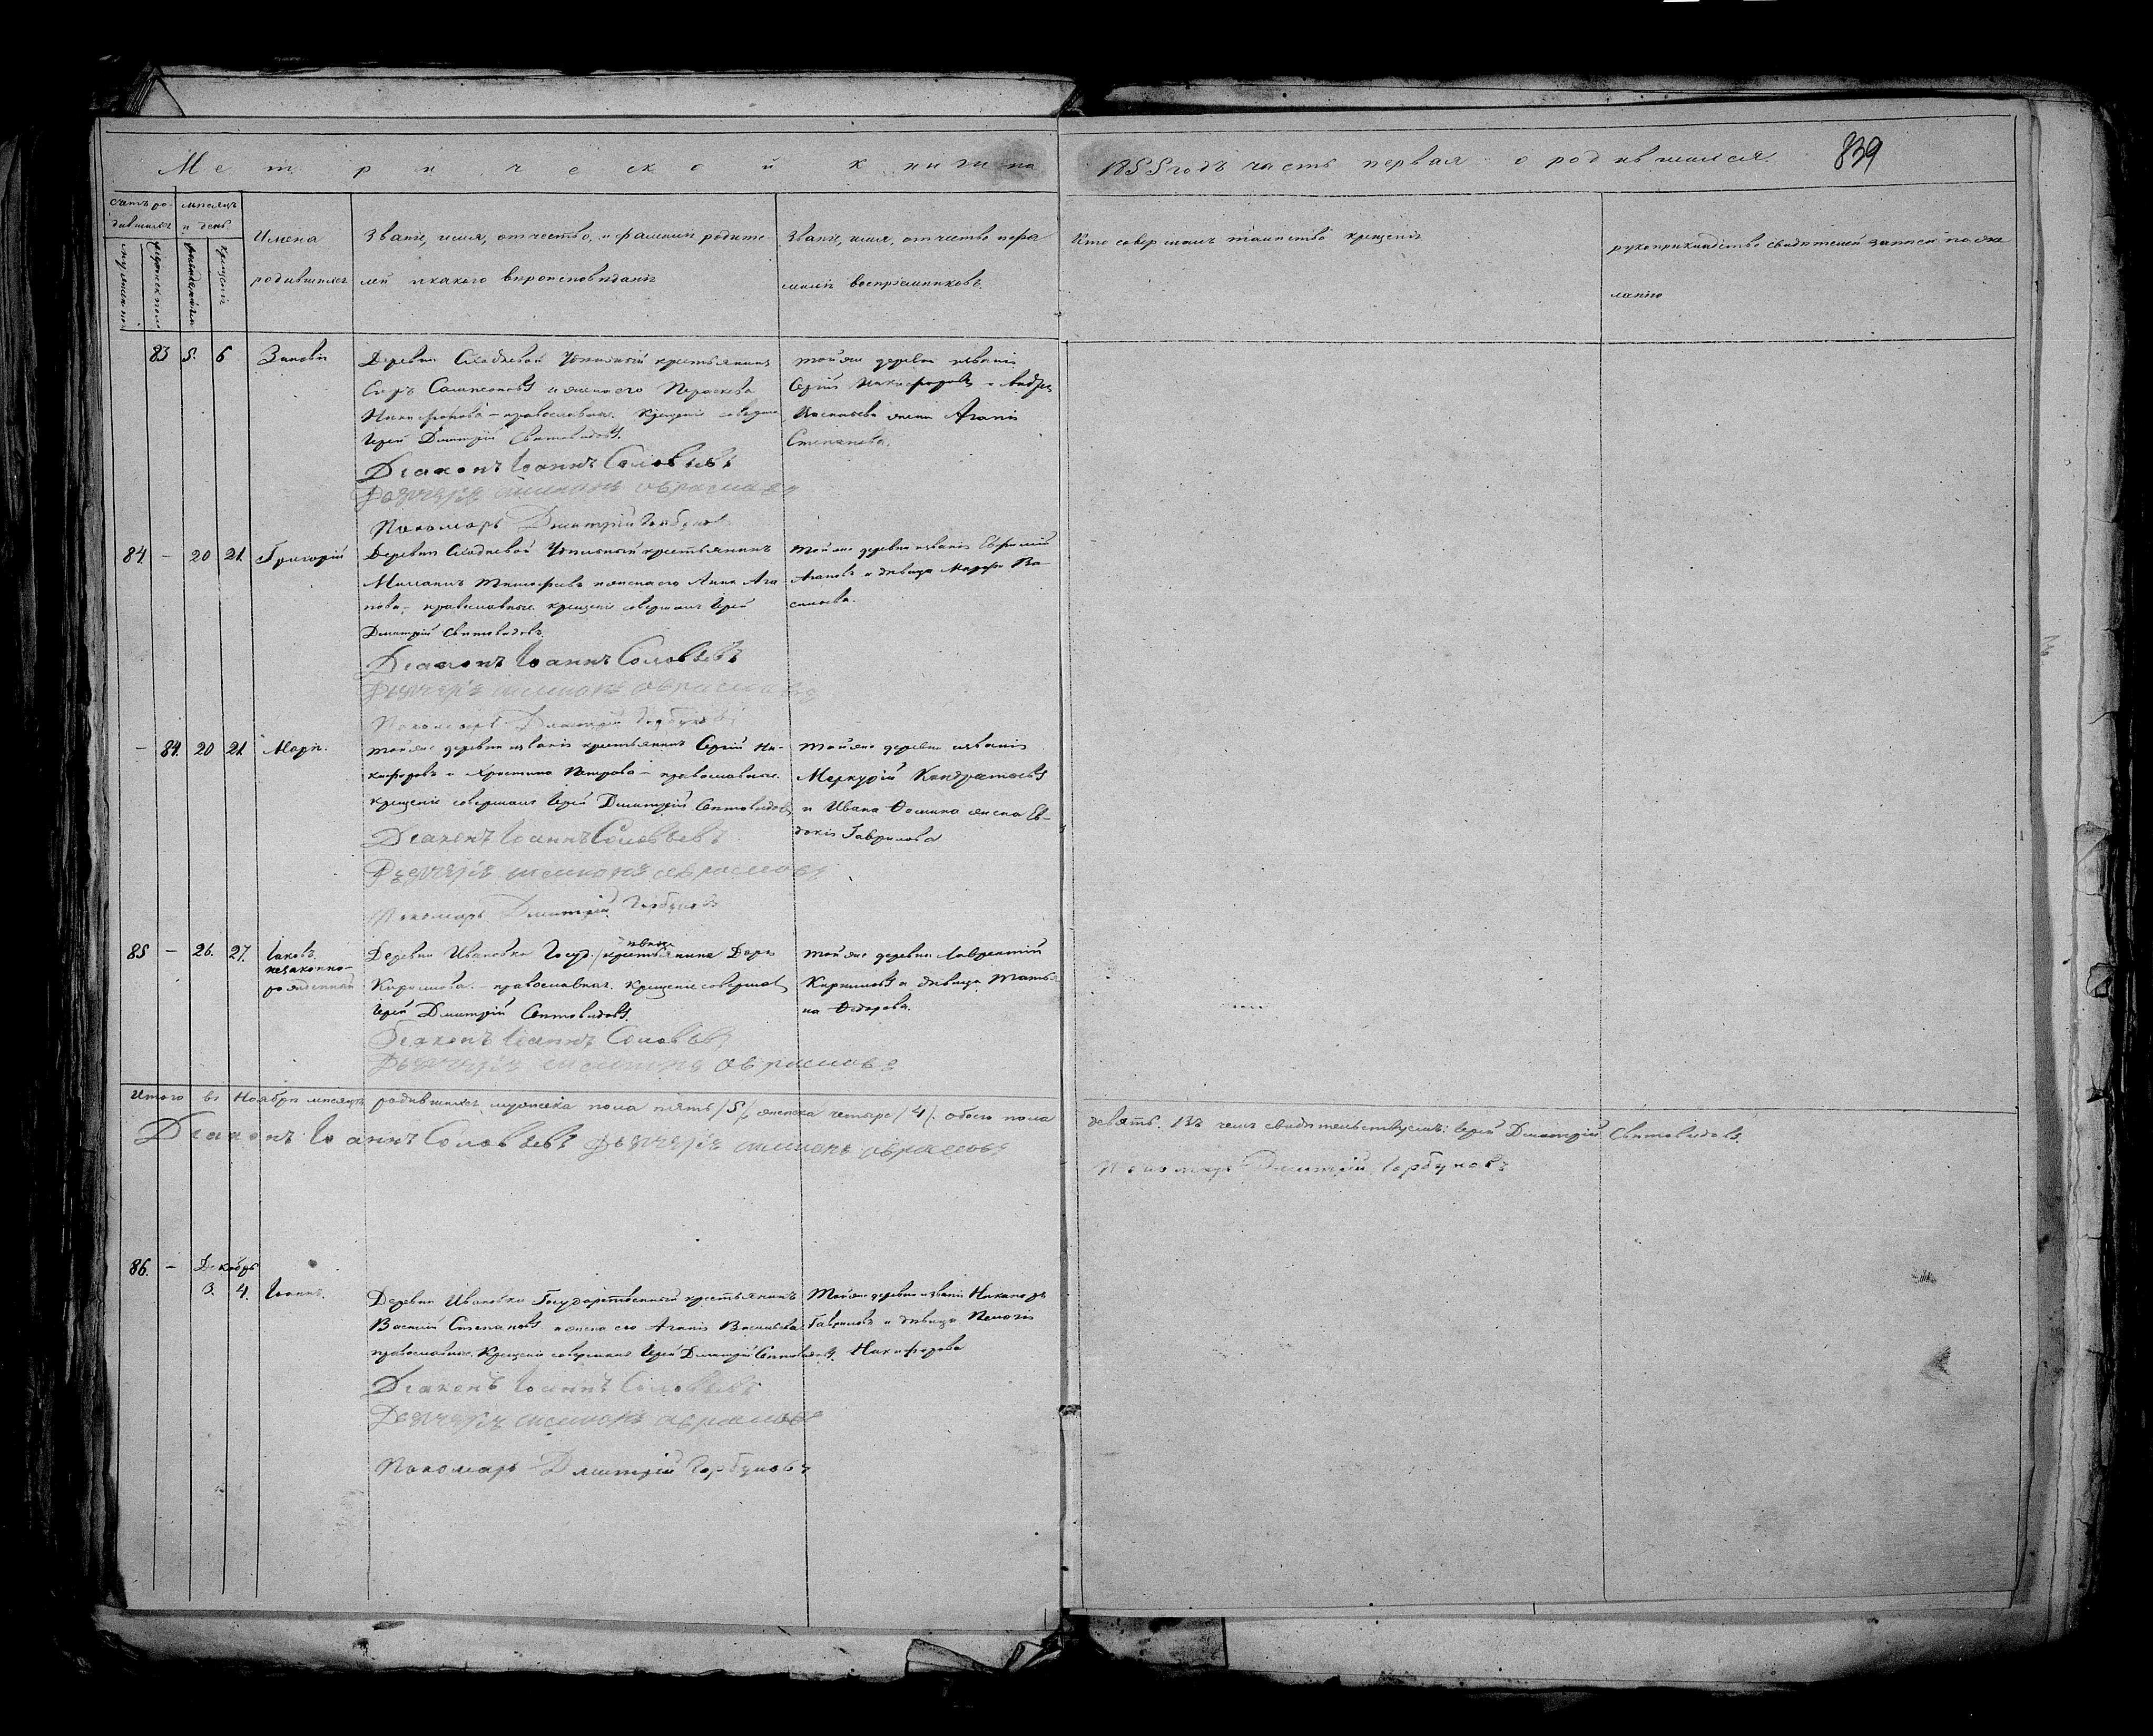 Метрической книги на 1855 годъ часть первая о родившихся.
839
Счетъ ро-
дившихся
мѣсяцъ
и день
мужеска пола
женска пола
рожденія
крещенія
Имена
родившихся
Званіе, имя, отчество, и фамилія родите
лей и какого вѣроисповѣданія
Званіе, имя, отчество и фа
милія воспріемниковъ.
Кто совершалъ таинство крещенія
рукоприкладство свидѣтелей записи по же
ланію
83 5. 6 Зиновія
Деревни Сходневой Удѣльный крестьянинъ
Сампсоновъ и жена его Параскева
Никифорова – православные. Крещеніе
Іерей Дмитрій Святовидовъ.
Діаконъ Іоаннъ Соловьевъ
Дьячекъ
Пономарь Дмитрій Горбуновъ
той же деревни и званія
Сергій Никифоровъ и
жена Агапія
Степанова.
84. – 20 21. Григорій
Деревни Сходневой Удѣльный крестьянинъ
Тимофеевъ и жена его Анна Ага
пова, – православные крещеніе совершалъ Іерей
Дмитрій Святовидовъ.
Діаконъ Іоаннъ Соловьевъ
Дьячекъ
Пономарь Дмитрій Горбуновъ
той же деревни и званія Евфимій
Агаповъ и дѣвица Ва-
сильева.
– 84. 20 21. Марія.
той же деревни и званія крестьянинъ Сергій Ни-
кифоровъ и Христина Петрова – православные.
крещеніе совершалъ Іерей Дмитрій Святовидовъ
Діаконъ Іоаннъ Соловьевъ
Дьячекъ
Пономарь Дмитрій Горбуновъ
той же деревни и званія
Меркурій Кондратьевъ
и Ивана Ѳомина жена Ев-
докія Гаврилова
85 – 26. 27. Іаковъ.
незаконно-
рожденный
Деревни Ивановки Госуд. Дарья
Кирилова. – православная. Крещеніе совершалъ
Іерей Дмитрій Святовидовъ.
Діаконъ Іоаннъ Соловьевъ
Дьячекъ
той же деревни Лаврентій
Кириловъ и дѣвица Татья
на Ѳедорова.
Итого въ Ноябрѣ мѣсяцѣ родившихся мужеска пола пять /5/, женска четыре /4/. обоего пола
девять. Въ чемъ свидѣтельствуемъ: Іерей Дмитрій Святовидовъ.
Діаконъ Іоаннъ Соловьевъ Дьячекъ
Пономарь Дмитрій Горбуновъ
86. – Декабрь
3. 4. Іоаннъ.
Деревни Ивановки Государственный крестьянинъ
Василій Степановъ и жена его Агапія Васильева
православные. Крещеніе совершалъ Іерей Дмитрій Святовидовъ.
Діаконъ Іоаннъ Соловьевъ
Дьячекъ
Пономарь Дмитрій Горбуновъ
Той же деревни и званія Никаноръ
Гавриловъ и дѣвица Пелагія
Никифорова